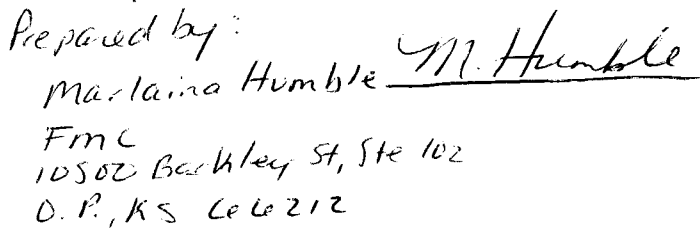 Prepared by:
Marlaina Humble M. Humble
FMC
10500 Barkley St, Ste 102
O.P., KS 66212